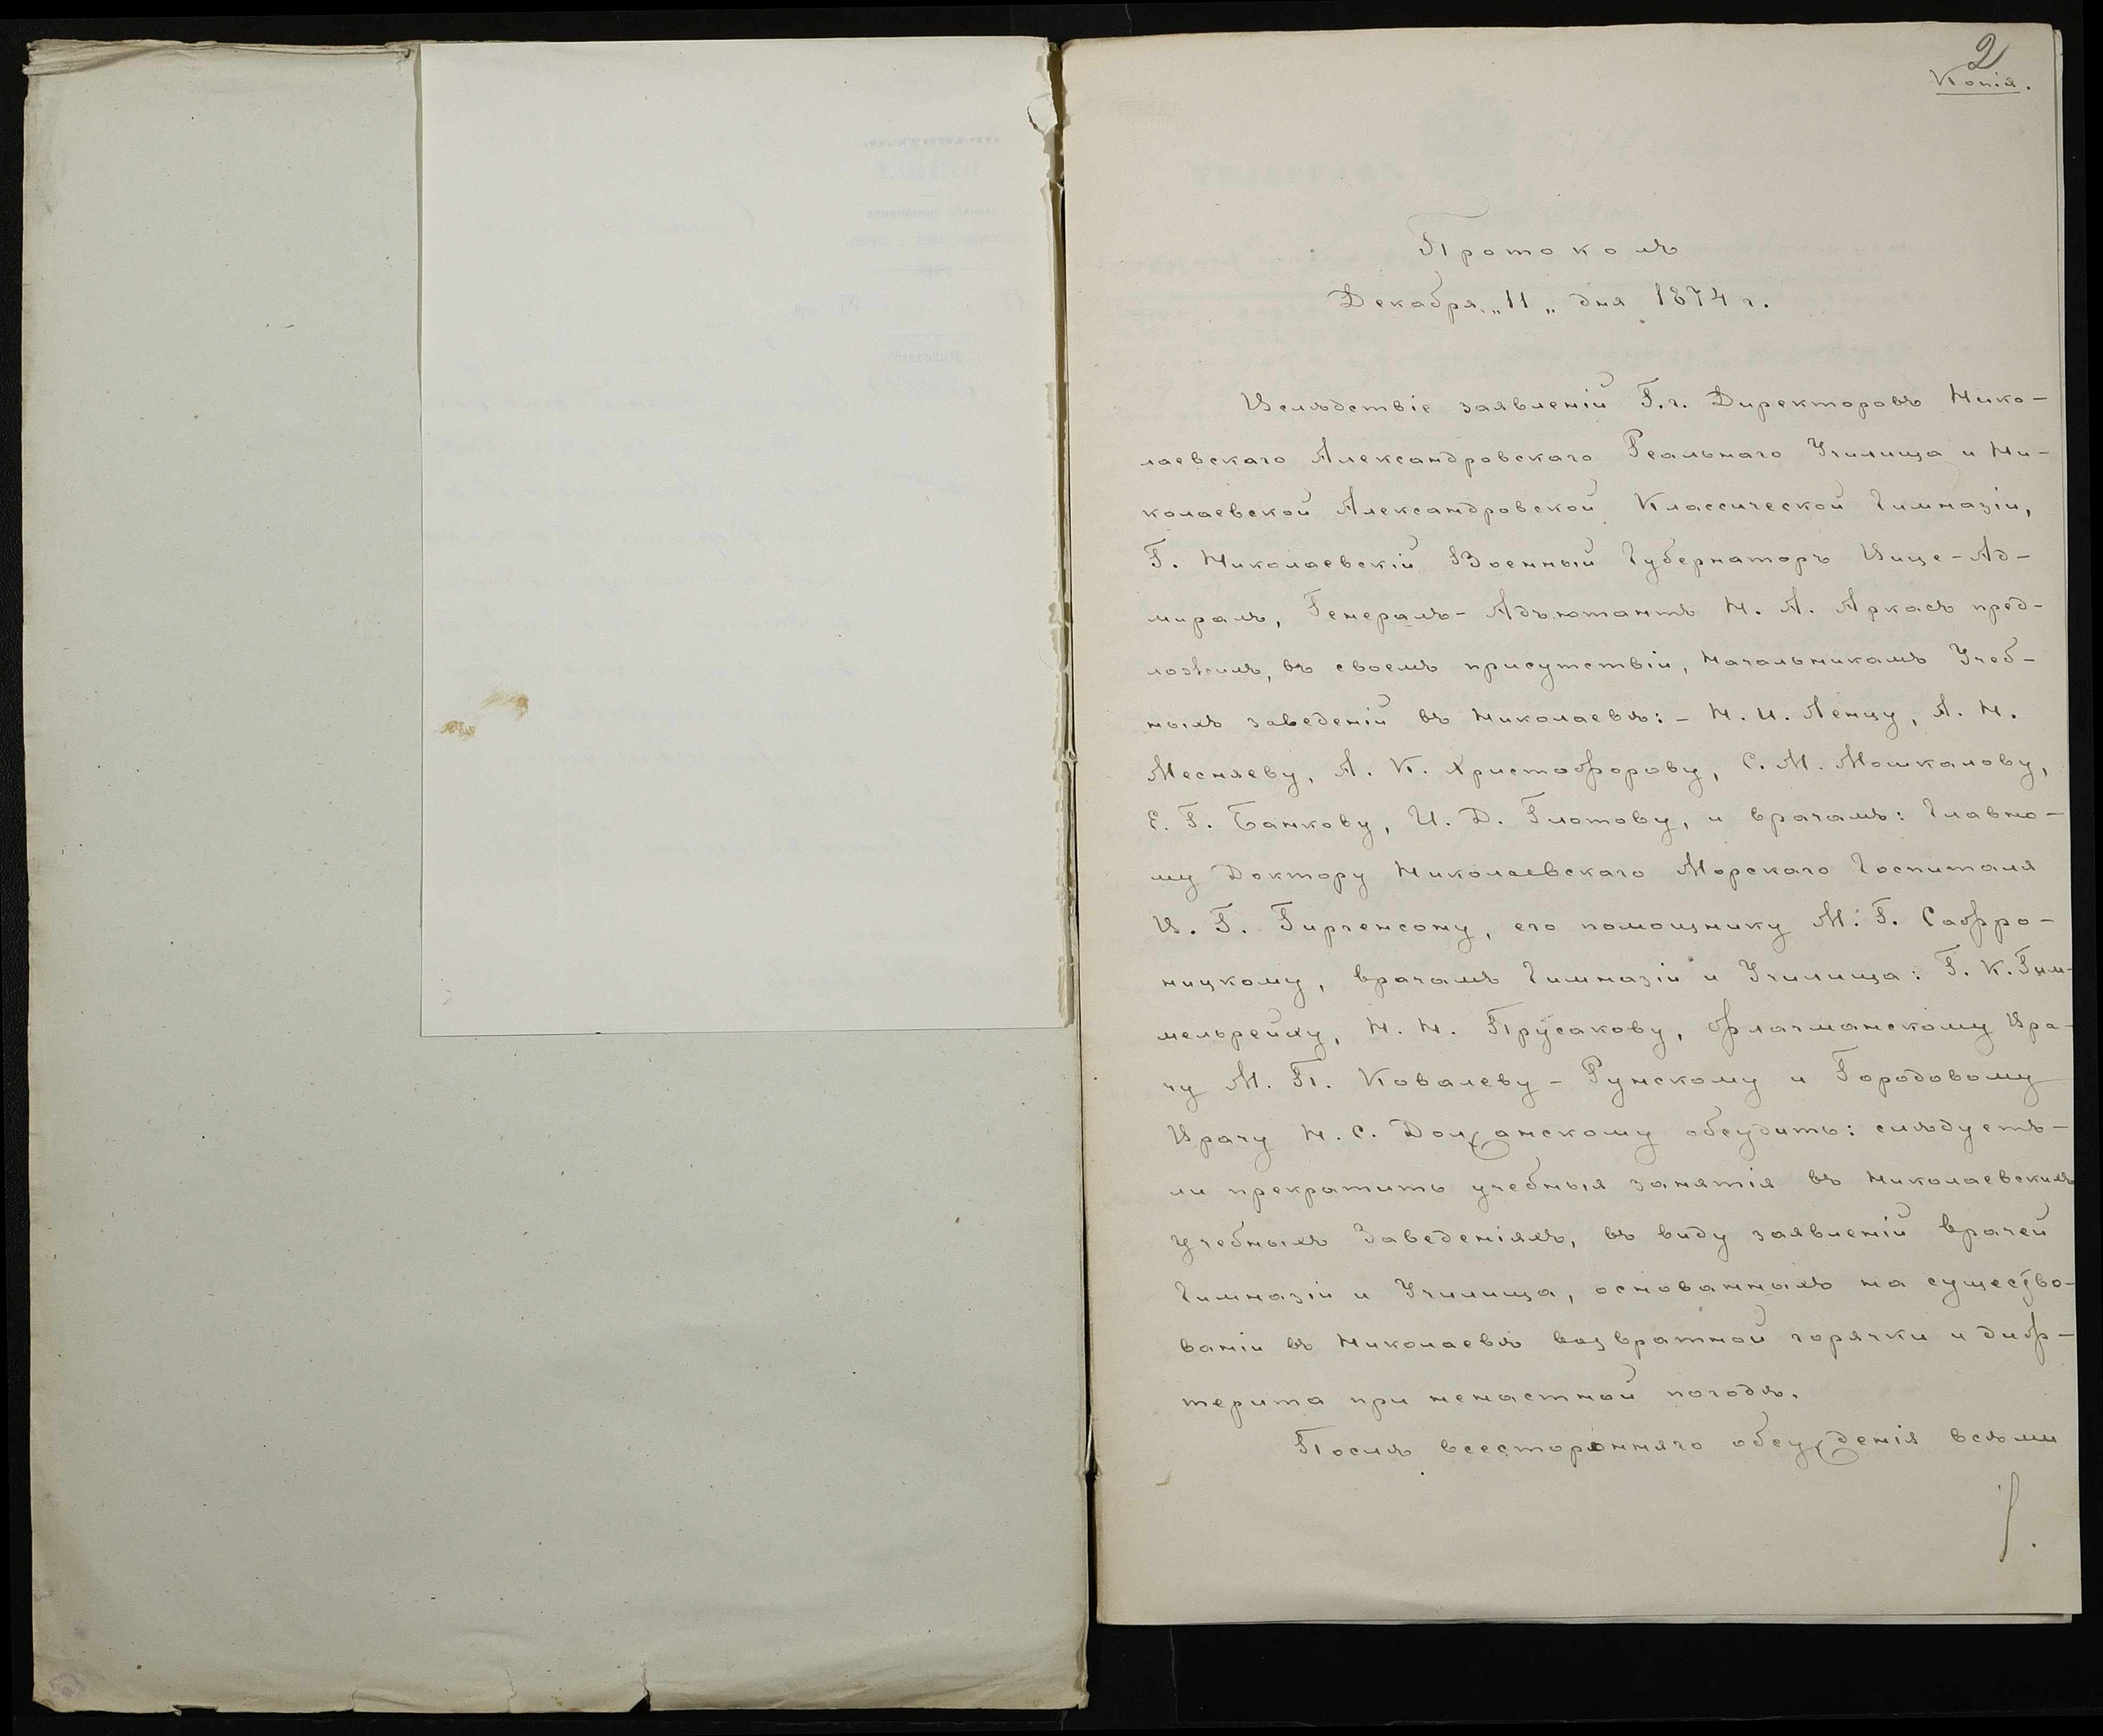 2
Копія.
Протоколъ
Декабря „11„ дня 1874 г.
Вслѣдствіе заявленій Г.г. Директоровъ Нико-
лаевскаго Александровскаго Реальнаго Училища и Ни-
колаевской Александровской Классической Гимназіи,
Г. Николаевскій Военный Губернаторъ Вице-Ад-
миралъ, Генералъ-Адъютантъ Н. А. Аркасъ пред-
ложилъ, въ своемъ присутствіи, Начальникамъ Учеб-
ныхъ заведеній въ Николаевѣ: - Н. И. Ленцу, А. Н.
Месняеву, А. К. Христофорову, С. М. Мошкалову,
Е. Г. Банкову, И. Д. Глотову, и врачамъ: Главно-
му Доктору Николаевскаго Морскаго Госпиталя
В. Г. Гиргенсону, его помощнику М. Г. Сафро-
ницкому, врачамъ Гимназіи и Училища: Г. К. Гим-
мельрейху, Н. Н. Прусакову, Флагманскому Вра-
чу М. П. Ковалеву-Рунскому и Городовому
Врачу Н. С. Должанскому обсудить: слѣдуетъ-
ли прекратить учебныя занятія въ Николаевскихъ
Учебныхъ Заведеніяхъ, въ виду заявленій врачей
Гимназіи и Училища, основанныхъ на существо-
ваніи въ Николаевѣ возвратной горячки и диф-
терита при ненастной погодѣ.
Послѣ всесторонняго обсужденія всѣми